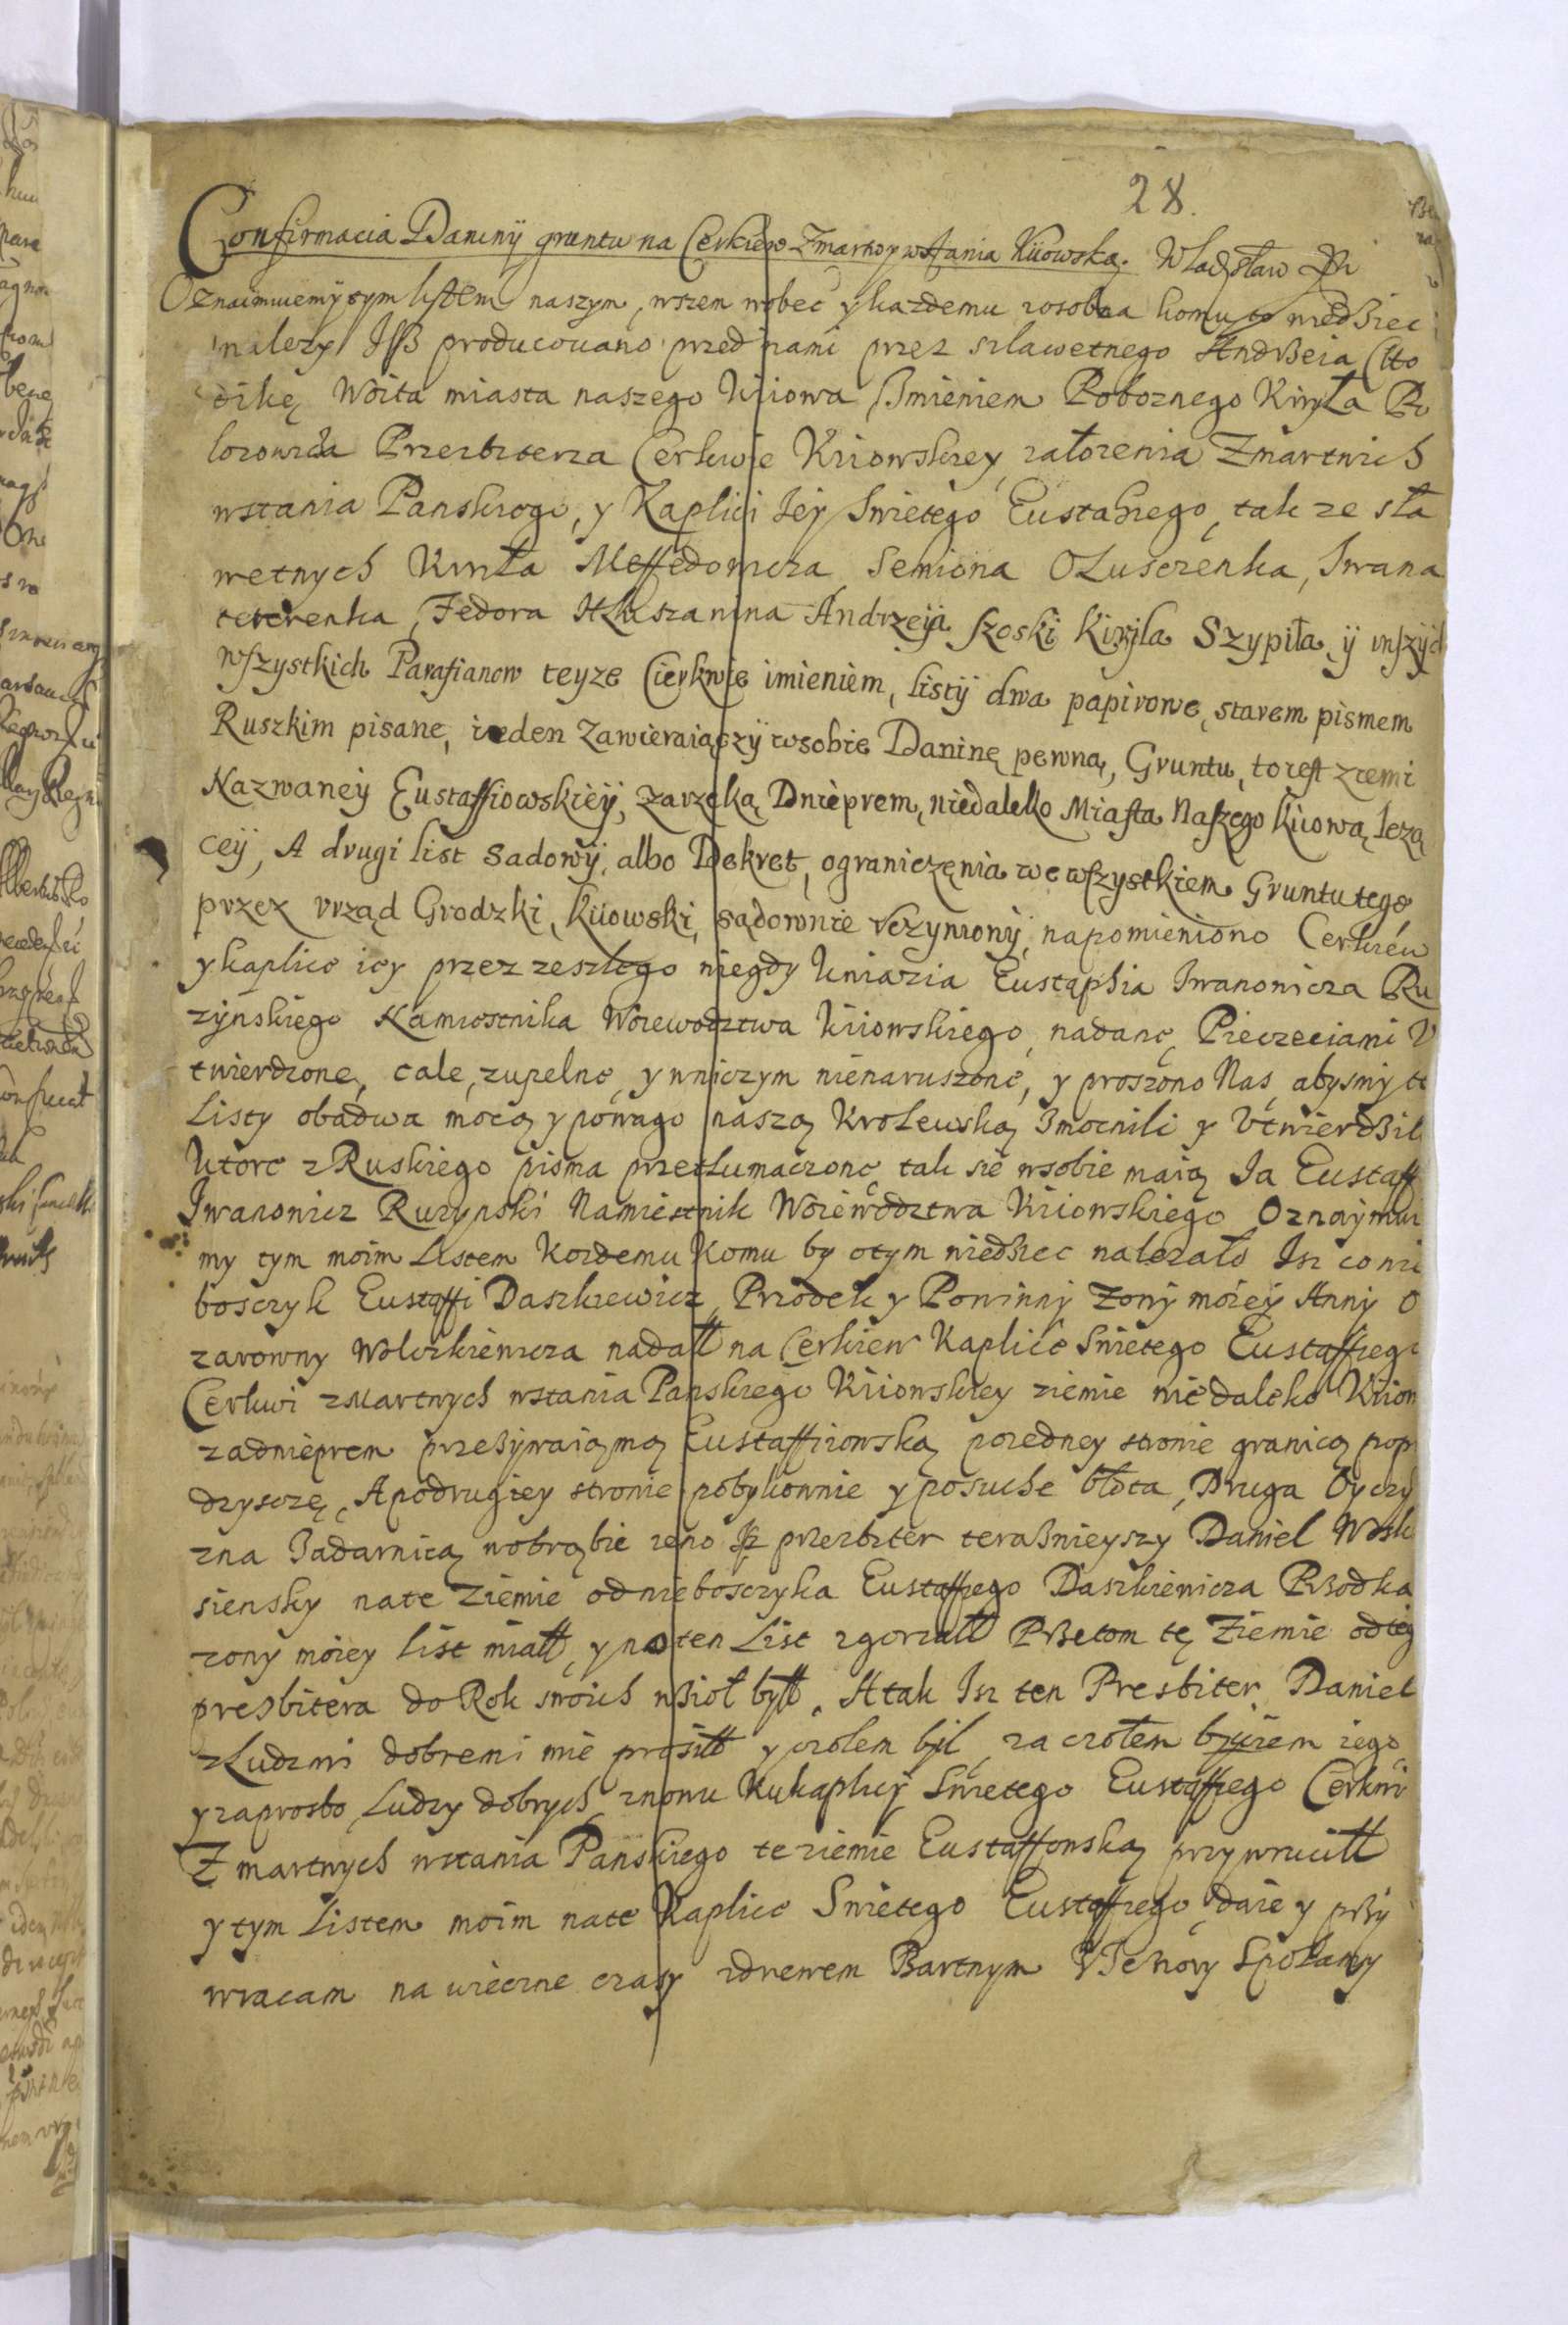 28.
Confirmacia Daniny gruntu na Cerkiew Zmartwywstania Kiiowską. Władysław
Oznaimuiemy tym listem naszym, wszem wobec y kazdemu zosobna komu to wiedziec
nalezy Iß producowano przed nami przez szlawetnego Andrzeia Cho
dikę Woita miasta naszego Kiiowa, Imieniem Poboznego Kiryła Po
lozowicza Prezbitera Cerkwie Kiiowskiey, załozenia Zmartwich
wstania Panskiego, y Kaplici Jey Swietego Eustahiego, tak ze sła
wetnych Kiryła Meffedowicza, Semiona Olusczenka, Iwana
teterenka, Fedora Andrzeÿa Szoski Kiryla Szypiła, ÿ inszÿch
wszystkich Parafianow teyze Cierkwie imieniem, listÿ dwa papirowe, starem pismem
Ruszkim pisane, ieden Zawieraiączÿ wsobie Daninę pewną, Gruntu, to iest ziemi
Nazwaneÿ Eustaffiowskieÿ, za rzeką Dnieprem, niedaleko Miasta Naszego Kiiowa, lezą
ceÿ, A drugi list sadowÿ, albo Dekret, ograniczenia we wszystkiem Gruntu tego,
przez vrząd Grodzki, Kiiowski, sądownie Vczynionÿ, napomieniono Cerkiew
y kaplice iey przez zeszłego niegdy Kniazia Eustaphia Iwanowicza Ru
zynskiego Namiestnika Woiewodztwa Kiiowskiego, nadane, Pieczeciami V
twierdzone, cale, zupelne, y wniczym nienaruszone, y proszono Nas, abysmy te
Listy obadwa mocą y powago naszą Krolewską Zmocnili y Vtwierdzili
Ktore z Ruskiego pisma przetlumaczone tak sie wsobie maią Ia Eustaff
Iwanowicz Ruzynski Namiestnik Woiewodztwa Kiiowskiego Oznaymui
my tym moim Listem Kozdemu Komu by otym niedziec nalezało Isz co nie
bosczyk Eustaffi Daszkiewicz, Przodek y Powinny Zony moiey Anny O
zarowny Wolczkiewicza nadałł na Cerkiew Kaplice Swietego Eustaffiego
Cerkwi zmartwych wstania Panskiego Kiiowskiey ziemie niedaleko Kiiow
zadnieprem przezywaiącą Eustaffiowską po iedney stronie granicą pop
dzyscze, A podrugiey stronie pobykownie y posuche błota, Druga Oyczy
zna Zadarnicą wobrąbie ieno Isz prezbiter teraznieyszy Daniel
siensky nate Ziemie od nieboscyka Eustaffiego Daszkiewicza Przodka
zony moiey list miałł, y na ten List zgorzałł Przetom tę Ziemie odteg
presbitera do Rok swoich wziołbyłł. A tak Isz ten Presbiter Daniel
z Ludzmi dobremi mie prosiłł y czolem bjl, za czołem bjciem iego
y za prosbo Ludzy dobrych, znowu Kukaplicy Swietego Eustaffiego Cerkwi
Zmartwych wstania Panskiego te ziemie Eustaffowską przywruciłł
y tym Listem moim nate Kaplice Swietego Eustaffiego daie y przy
wracam na wieczne czasy zdrewem Bartnym